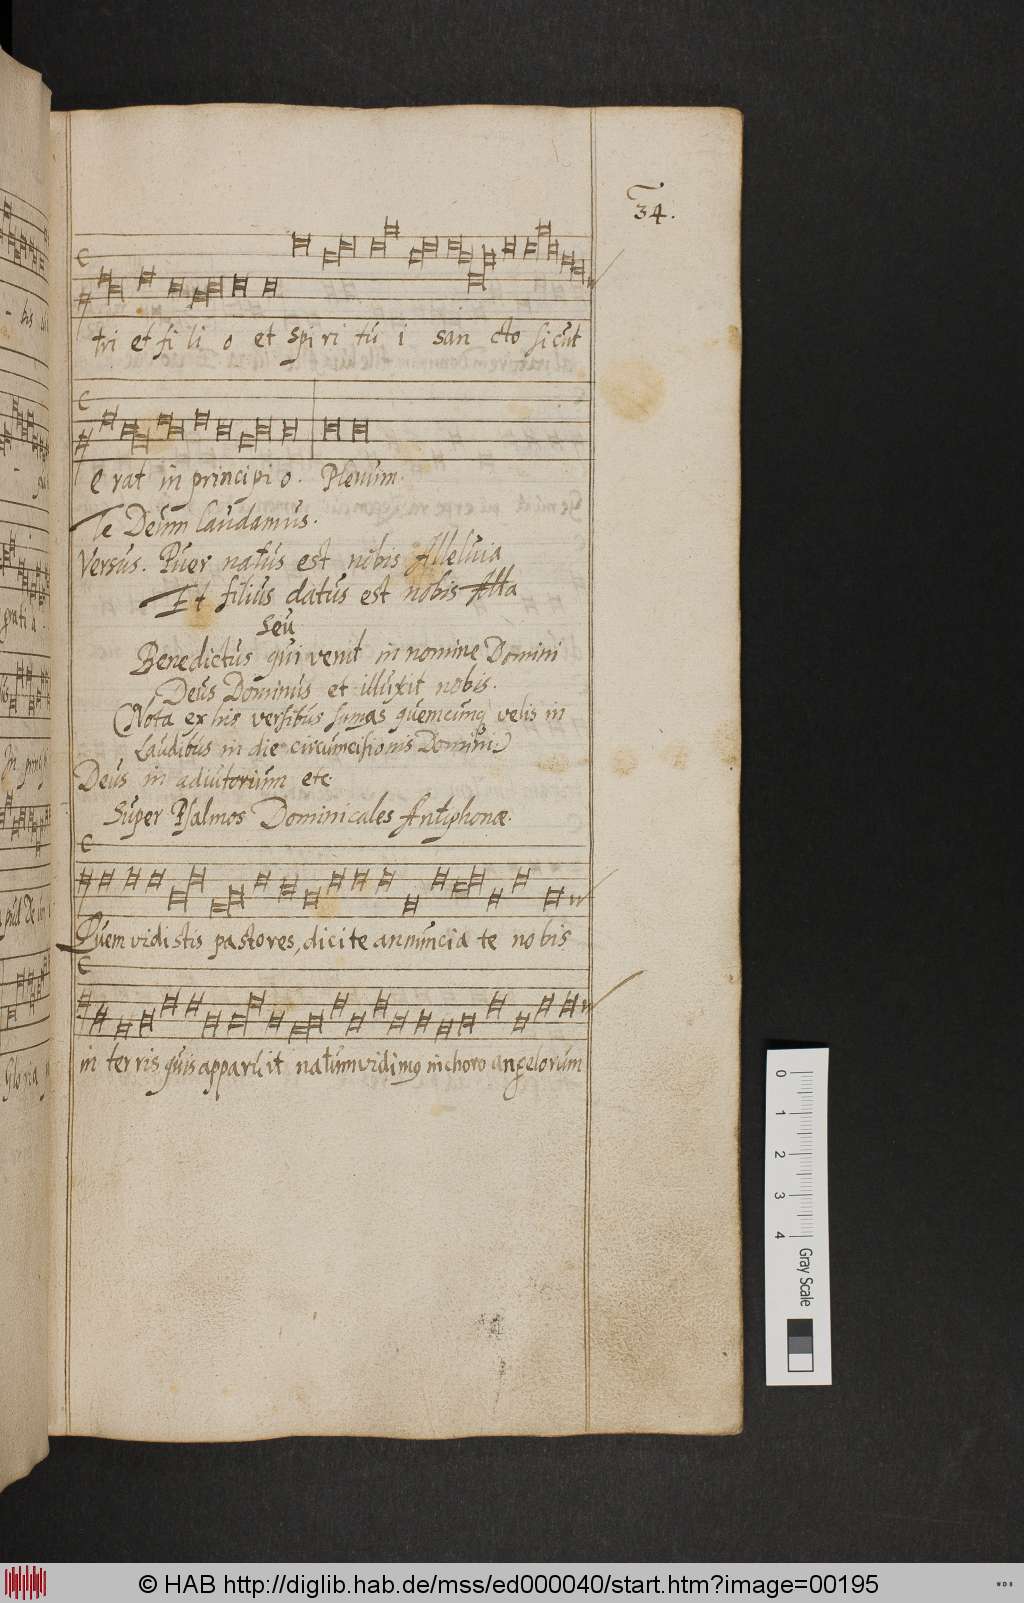 34.
tri et fi li o et spi ri tu i san cto sicut
e rat in principi o. Plenum.
Te Deum laudamus.
Versus. Puer natus est nobis Alleluia
Et filius datus est nobis Alla
seu
Benedictus qui venit in nomine Domini
Deus Dominus et illuxit nobis.
(Nota ex his versibus sumas quemcunq velis in
Laudibus in die circumcisionis Domini.)
Deus in adiutorium etc.
Super Psalmos Dominicales Antiphonæ.
Quem vidistis pastores, dicite annuncia te nobis
in terris quis apparuit natum vidimq in choro angelorum
- bis
grati a.
In prin
apud De um
Gloria
0 1 2 3 4 Gray Scale
© HAB http://diglib.hab.de/mss/ed000040/start.htm?image=00195